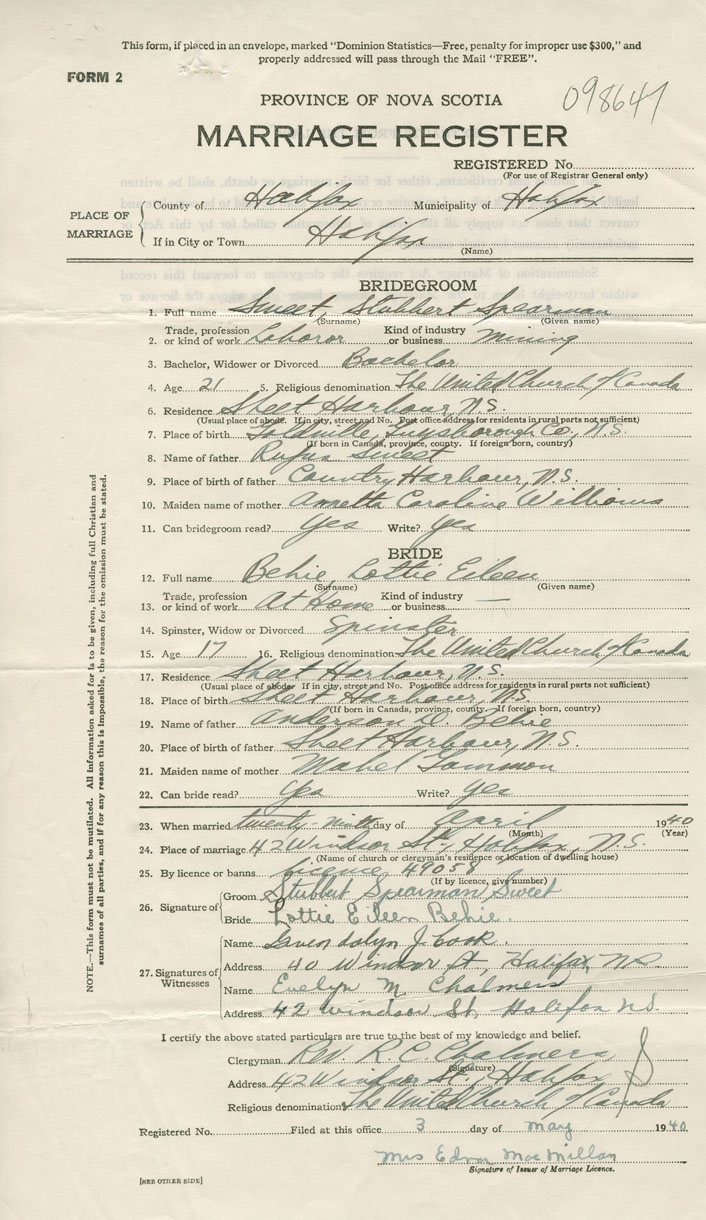 This form, if placed in an envelope, marked "Dominion Statistics—Free, penalty for improper use $300," and
properly addressed will pass through the Mail "FREE".
FORM 2
098647
PROVINCE OF NOVA SCOTIA
MARRIAGE REGISTER
REGISTERED No.
(For use of Registrar General only)
PLACE OF MARRIAGE
County of Halifax Municipality of Halifax
If in City or Town Halifax
(Name)
BRIDEGROOM
1. Full name Sweet, Stubbert Spearman
(Surname) (Given name)
2. Trade, profession or kind of work Laborer Kind of industry or business Mining
3. Bachelor, Widower or Divorced Bachelor
4. Age 21 5. Religious denomination The United Church of Canada
6. Residence Sheet Harbour, N.S.
(Usual place of abode. If in city, street and No. Post office address for residents in rural parts not sufficient)
7. Place of birth Goldville, Guysborough Co., N.S.
(If born in Canada, province, county. If foreign born, country)
8. Name of father Rufus Sweet
9. Place of birth of father Country Harbour, N.S.
10. Maiden name of mother Annetta Caroline Williams
11. Can bridegroom read? Yes Write? Yes
BRIDE
12. Full name Behie, Lottie Eileen
(Surname) (Given name)
13. Trade, profession or kind of work At Home Kind of industry or business —
14. Spinster, Widow or Divorced Spinster
15. Age 17 16. Religious denomination The United Church of Canada
17. Residence Sheet Harbour, N.S.
(Usual place of abode. If in city, street and No. Post office address for residents in rural parts not sufficient)
18. Place of birth Sheet Harbour, N.S.
(If born in Canada, province, county. If foreign born, country)
19. Name of father Anderson D. Behie
20. Place of birth of father Sheet Harbour, N.S.
21. Maiden name of mother Mabel
22. Can bride read? Yes Write? Yes
23. When married twenty-ninth day of April 1940
(Month) (Year)
24. Place of marriage 42 Windsor St., Halifax, N.S.
(Name of church or clergyman's residence or location of dwelling house)
25. By licence or banns licence 49058
(If by licence, give number)
26. Signature of
Groom Stubbert Spearman Sweet
Bride Lottie Eileen Behie.
27. Signatures of Witnesses
Name Gwendolyn J. Cook.
Address 40 Windsor St, Halifax, NS
Name Evelyn M. Chalmers
Address 42 Windsor St. Halifax N.S.
I certify the above stated particulars are true to the best of my knowledge and belief.
Clergyman Rev. R. C. Chalmers
(Signature)
Address 42 Windsor St., Halifax
Religious denomination The United Church of Canada
Registered No. Filed at this office 3 day of May 1940
Mrs Edna MacMillan
Signature of Issuer of Marriage Licence.
[SEE OTHER SIDE]
NOTE.—This form must not be mutilated. All information asked for is to be given, including full Christian and
surnames of all parties, and if for any reason this is impossible, the reason for the omission must be stated.